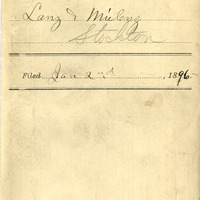 Lanz & Mieleng
Stockton
Filed Jan 2nd, 1896